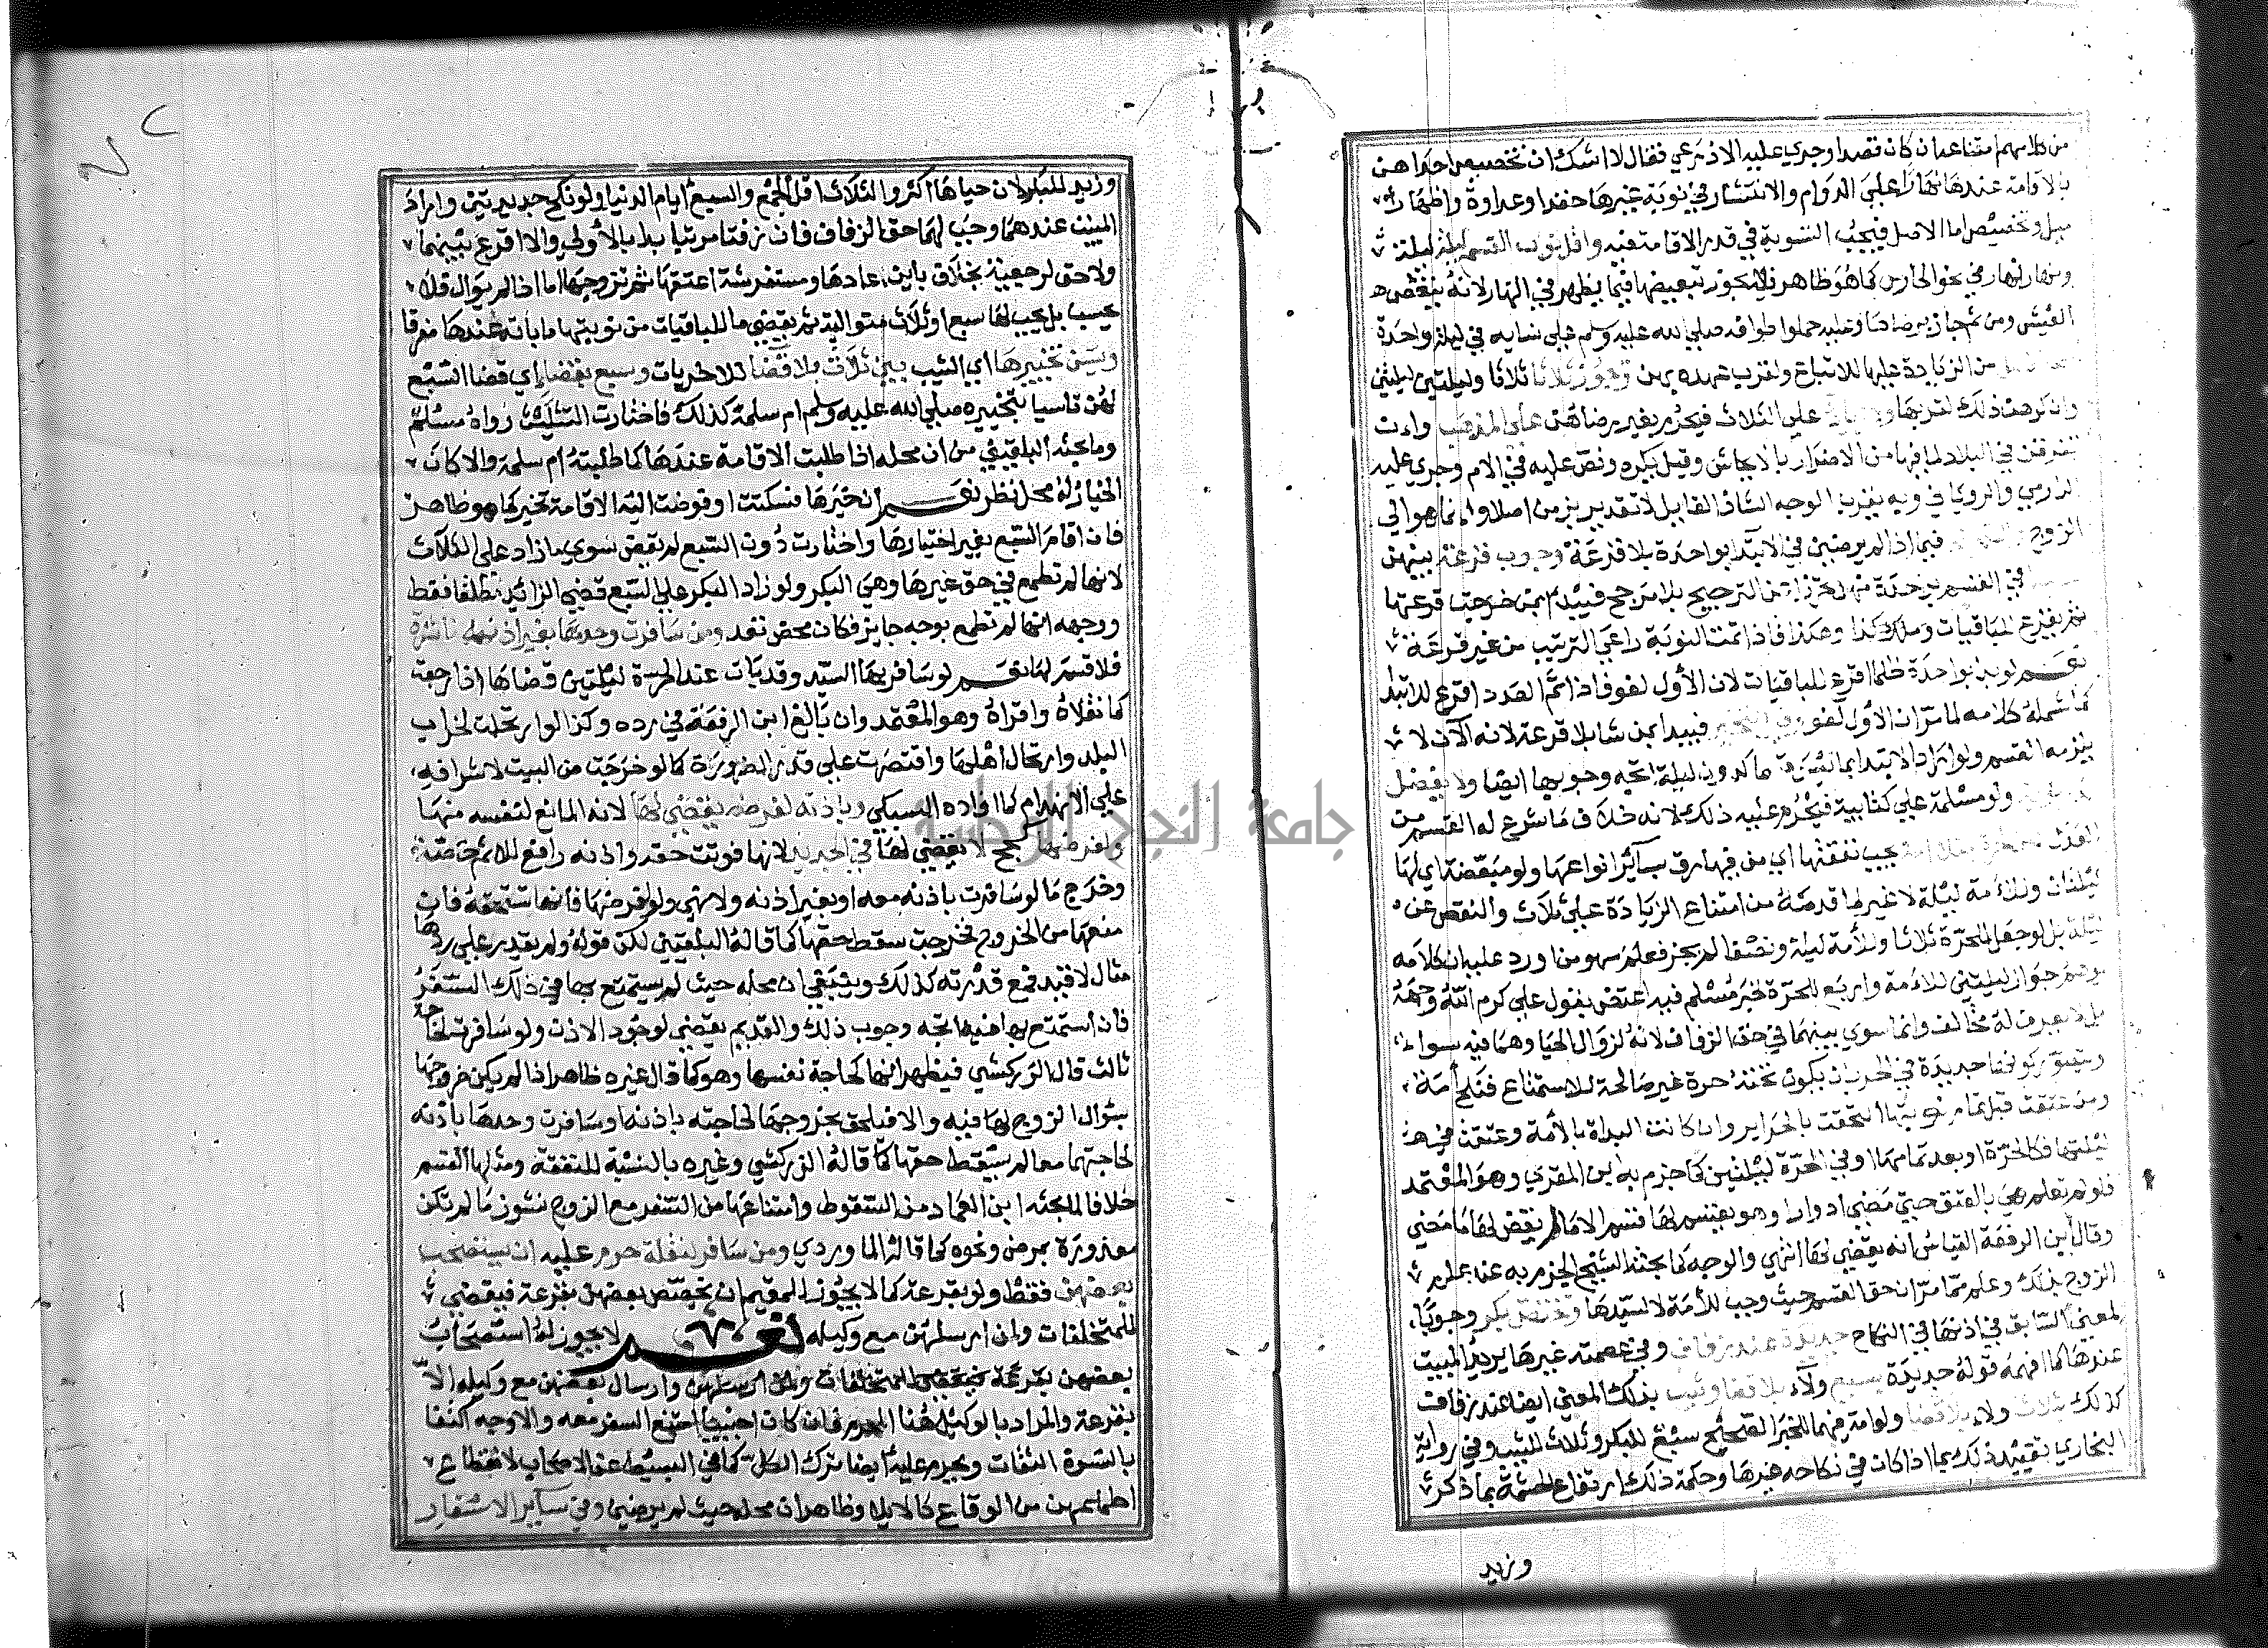 من كلامهم امتناعه ان كان قصدا وجري عليه الاذرعي فقال لا اشك ان تخصيص احداهن
بالاقامة عندها نهارا علي الدوام والانتشار في نوبة غيرها حقدا وعداوة واظهار
ميل وتخصيص اما الاصل فيجب التسوية في قدر الاقامة فيه واقل نوب القسم ليلة ليلة
ونهار نهار في نحو الحارس كما هو ظاهر فلا يجوز تبعيضها فيما يظهر في النهار لانه ينغص
العيش ومن ثم جاز برضاهن وعليه حملوا طوافه صلي الله عليه وسلم علي نسايه في ليلة واحدة
من الزيادة عليها للاتباع ولقرب عهده بهن ويجوز ثلاثا ثلاثا وليلتين ليلتين
وان كرهن ذلك لقربها علي الثلاث فيحرم بغير رضاهن علي المذهب وان
تفرقن في البلاد لما فيها من الاضرار بالايحاش وقيل يكره ونص عليه في الام وجري عليه
الدارمي والروياني وبه يقرب الوجه الشاذ القايل لا تقدير بزمن اصلا وانما هو الي
الزوج فيما اذا لم يرضين في الابتدا بواحدة بلا قرعة وجوب قرعة بينهن
في القسم بواحدة منهن تحرزا عن الترجيح بلا مرجح فيبدا بمن خرجت قرعتها
ثم يقرع للباقيات وهكذا فاذا تمت النوبة راعي الترتيب من غير قرعة
نعم لو بدا بواحدة ظلما اقرع للباقيات لان الاول لغو فاذا تم العدد اقرع للابتدا
كما شمله كلامه لما مر ان الاول لغو فيبدا بمن شا بلا قرعة لانه الان لا
يلزمه القسم ولو اراد الابتدا بما دون ليلة اتجه وجوبها ايضا ولا يفضل
ولو مسلمة علي كتابية فيحرم عليه ذلك لانه خلاف ما شرع له القسم من
العدل تجب نفقتها اي من فيها رق بساير انواعها ولو مبعضة اي لها
ليلتان وللامة ليلة لا غير لما قدمه من امتناع الزيادة علي ثلاث والنقص عن
ليلة بل لو جعل للحرة ثلاثا وللامة ليلة ونصفا لم يجز فعلم سهو من اورد عليه ان كلامه
يوهم جواز ليلتين للامة واربع للحرة لخبر مسلم فيه اعتضد بقول علي كرم الله وجهه
بل لا يعرف له مخالف وانما سوي بينهما في حق الزفاف لانه لزوال الحيا وهما فيه سواء
ويتصور كونها جديدة في الحر بان يكون تحته حرة غير صالحة للاستمتاع فنكح امة
ومن عتقت قبل تمام نوبتها التحقت بالحراير وان كانت البداة بالامة وعتقت في
ليلتها فكالحرة او بعد تمامها اوفي الحرة ليلتين كما جزم به ابن المقري وهو المعتمد
فلو لم تعلم هي بالعتق حتي مضي ادوار وهو يقسم لها قسم الاما لم يقض لها ما مضي
وقال ابن الرفعة القياس انه يقضي لها انتهي والوجه كما بحثه الشيخ الجزم به عند علم
الزوج بذلك وعلم مما مر ان حق القسم حيث وجب للامة لا لسيدها وتختص بكر وجوبا
لمعني السابق في اذنها في النكاح جديدة عند زفاف وفي عصمته غيرها يريد المبيت
عندها كما افهمه قوله جديدة بسبع ولاء بلا قضا وثيب بذلك المعني ايضا عند زفاف
كذلك بثلاث ولاء بلا قضا ولو امة فيهما للخبر الصحيح سبع للبكر وثلاث للثيب وفي رواية
البخاري تقييد ذلك بما اذا كان في نكاحه غيرها وحكمة ذلك ارتفاع الحشمة بما ذكر
وزيد
وزيد للبكر لان حياها اكثر والثلاث اقل الجمع والسبع ايام الدنيا ولو نكح جديدتين واراد
المبيت عندهما وجب لهما حق الزفاف فان زفتا مرتبا بدا بالاولي والا اقرع بينهما
ولا حق لرجعية بخلاف باين اعادها ومستفرشة اعتقها ثم تزوجها اما اذا لم يوال فلا
يحسب بل يجب لها سبع او ثلاث متوالية ثم يقضي ما للباقيات من نوبتها ما باته عندها مفرقا
ويسن تخييرها اي الثيب بين ثلاث بلا قضا للاخريات وسبع بقضا اي قضا السبع
لهن تاسيا بتخييره صلي الله عليه وسلم ام سلمة كذلك فاختارت التثليث رواه مسلم
وما بحثه البلقيني من ان محله اذا طلبت الاقامة عندها كما طلبته ام سلمة والا كان
الخيار له محل نظر نعم ان خيرها فسكتت او فوضت اليه الاقامة تخير كما هو ظاهر
فان اقام السبع بغير اختيارها او اختارت دون السبع لم يقض سوي ما زاد علي الثلاث
لانها لم تطمع في حق غيرها وهي البكر ولو زاد البكر علي السبع قضي الزائد مطلقا فقط
ووجهه انها لم تطمع بوجه جايز فكان محض تعد ومن سافرت وحدها بغير اذنه ناشزة
فلا قسم لها نعم لو سافر بها السيد وقد بات عند الحرة ليلتين قضاها اذا رجعت
كما نقلاه واقراه وهو المعتمد وان بالغ ابن الرفعة في رده وكذا لو ارتحلت لخراب
البلد وارتحال اهلها واقتصرت علي قدر الضرورة كما لو خرجت من البيت لاشرافه
علي الانهدام كما افاده السبكي وباذنه لغرضه يقضي لها لانه المانع لنفسه منها
ولغرضها كحج لا يقضي لها في الجديد لانها فوتت حقه واذنه رافع للاثم خاصة
وخرج ما لو سافرت باذنه معه او بغير اذنه ولا نهي ولو لغرضها فانها تستحقه فان
منعها من الخروج فخرجت سقط حقها كما قاله البلقيني لكن قوله ولم يقدر علي ردها
مثال لا قيد فمع قدرته كذلك وينبغي ان محله حيث لم يستمتع بها في ذلك السفر
فان استمتع بها فيه اتجه وجوب ذلك والقديم يقضي لوجود الاذن ولو سافرت لحاجة
ثالث قال الزركشي فيظهر انها كحاجة نفسها وهو كما قال غيره ظاهر اذا لم يكن خروجها
بسؤال الزوج لها فيه والا فيلحق بخروجها لحاجته باذنه او سافرت وحدها باذنه
لحاجتهما معا لم يسقط حقها كما قاله الزركشي وغيره بالنسبة للنفقة ومثلها القسم
خلافا لما بحثه ابن العماد من السقوط وامتناعها من السفر مع الزوج نشوز ما لم تكن
معذورة بمرض ونحوه كما قاله الماوردي ومن سافر لنقلة حرم عليه ان يستصحب
بعضهن فقط ولو بقرعة كما لا يجوز للمقيم ان يخصص بعضهن بقرعة فيقضي
للمتخلفات وان ارسلهن مع وكيله نعم لا يجوز له استصحاب
بعضهن بقرعة فيقضي للمتخلفات ولمن ارسلهن وارسال بعضهن مع وكيله الا
بقرعة والمراد بالوكيل هنا المحرم فان كان اجنبيا امتنع السفر معه والاوجه اكتفا
بالنسوة الثقات ويحرم عليه ايضا ترك الكل كما في البسيط عن الاصحاب لانقطاع
اطماعهن من الوقاع كالايلا وظاهر ان محله حيث لم يرضين وفي ساير الاسفار